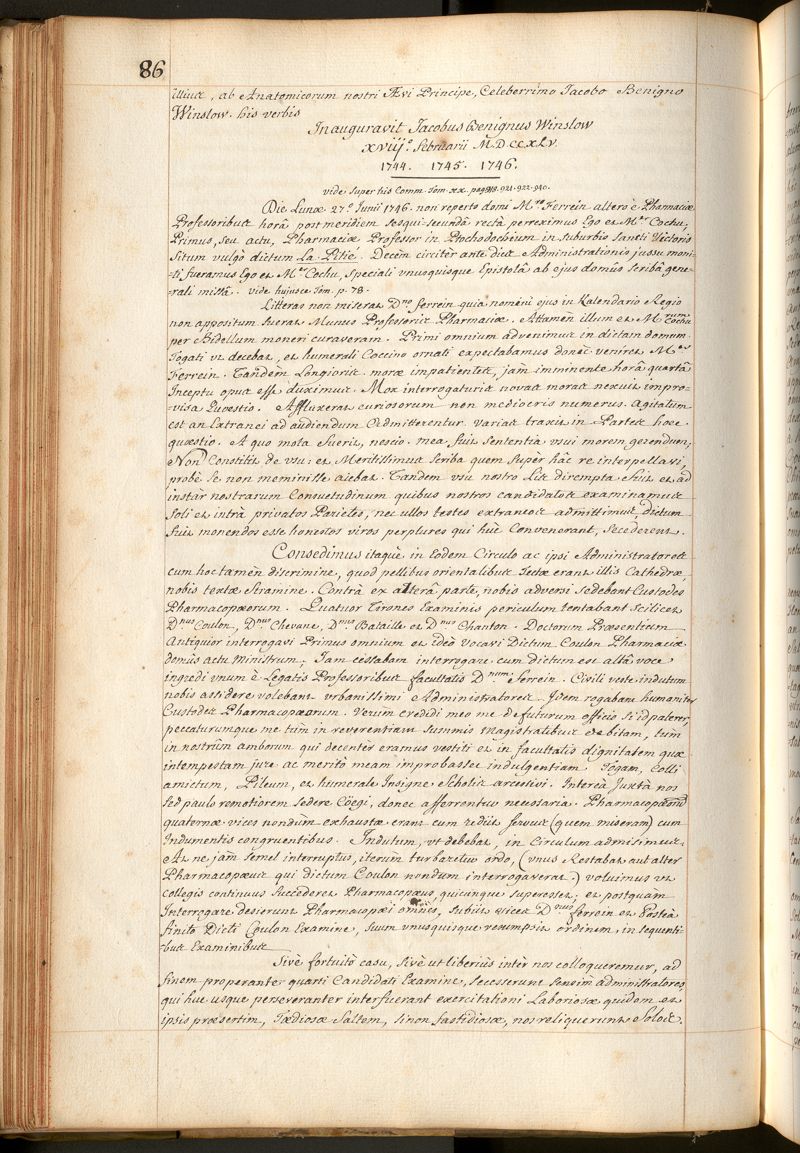 86
illius, ab Anatomicorum nostri Ævi Principe, Celeberrimo Jacobo Benigno
Winslow. his verbis
Inauguravit Jacobus Benignus Winslow
xviij.° Februarii M.D.CC.XLV.
1744. 1745. 1746.
vide super his Comm. Tom. xx. pag. 918. 921. 922. 940.
Die Lunæ 27.a Junii 1746. non reperto domi M.ro Ferrein altero è Pharmaciæ
Professoribus horâ post meridiem sesqui-secundâ rectà perreximus Ego et M.er Cochu,
Primus, seu actu, Pharmaciæ Professor in Ptochodochium in suburbio Sancti Victoris
Situm vulgò dictum La Pitié. Decem circitèr ante dies Administrationis jussu moni-
-ti fueramus Ego et M.er Cochu, speciali unusquisque Epistolâ ab ejus domûs scribâ gene-
-rali missâ. vide hujusce Tom. p. 78.
Litteras non miserat D.no ferrein quia nomini ejus in Kalendario Regio
non appositum fuerat Munus Professoris Pharmaciæ. Attamen illum et M.rum Cochu
per Bidellum moneri curaveram. Primi omnium advenimus in dictam domum.
Togati ut decebat, et humerali Coccino ornati expectabamus donec veniret M.er
Ferrein. Tandem Longioris moræ impatientes, jam imminente horâ quartâ
Inceptu opus esse duximus. Mox interrogaturis novas moras nexuit impro-
-visa Quæstio. Affluxerat curiosorum non mediocris numerus. Agitatum
est an Extranei ad audiendum Admitterentur. Varias traxit in Partes hæc
quæstio. A quo mota fuerit, nescio. mea fuit sententia usui morem gerendum;
Non Constitit de usu: et Meritissimus scriba quem super hâc re interpellavi,
probè se non meminisse aiebat. Tandem usu nostro Lis dirempta fuit et ad
instar nostrarum Consuetudinum quibus nostros candidatos examinamus
soli et intrà privatos Parietes, nec ullos testes extraneos admittimus, dictum
fuit monendos esse honestos viros perplures qui hùc Convenerant, secederent.
Consedimus itaquè in Eodem Circulo ac ipsi Administratores
cum hoc tamèn discrimine, quod pellibus orientalibus tectæ erant illis Cathedræ,
nobis textæ stramine. Contrà ex alterâ parte, nobis adversi sedebant Custodes
Pharmacopæorum. Quatuor Tirones Examinis periculum tentabant scilicet
D.nus Coulon, D.nus Chevane, D.nus Bataille et D.nus Chanton. Doctorum Præsentium
Antiquior interrogavi Primus omnium et ideò vocavi Dictum Coulon Pharmaciæ
domûs actu Ministrum; Jam cessabam interrogare cum dictum est altâ voce
ingredi unum è Legatis Professoribus facultatis D.num ferrein. Civili veste indutum
nobis assidere volebant urbanissimi Administratores. Idem rogabam humaniter
Custodes Pharmacopæorum. Verùm credidi meo me defuturum officio si id paterer,
peccaturumque me tum in reverentiam summis Magistratibus debitam, tum
in nostrûm amborum qui decentèr eramus vestiti et in facultatis dignitatem quæ
intempestam jure ac meritò meam improbasset indulgentiam. Togam, colli
amictum, Pileum, et humerale Insigne Scholis arcessivi. Intereà Juxtà nos
sed paulo remotiorem sedere Cöegi, donec afferrentur necessaria. Pharmacopæorum
quaternæ vices nondùm exhaustæ erant cum rediit servus (quem miseram) cum
Indumentis congruentibus. Indutum, ut debebat, in Circulum admisimus.
At ne jam semel interruptus, iterùm turbaretur ordo, (unus Restabat aut alter
Pharmacopæus qui dictum Coulon nondum interrogaverat) voluimus ut
collegis continuus succederet Pharmacopæus, quicunque superesset; et postquam
Interrogare desierunt Pharmacopæi omnes, subiit vices D.nus ferrein et Posteà
finito Dicti Coulon Examine, suum unusquisque resumpsit ordinem, in sequenti-
-bus Examinibus
Sivè fortuitò casu, sivè ut liberiùs intèr nos colloqueremur, ad
finem properante quarti Candidati Examine, secesserunt sensìm administratores,
qui huc usque perseveranter interfuerant exercitationi Laboriosæ quidem et
ipsis præsertim, Tædiosæ Saltem, si non fastidiosæ, nos reliquerunt Solos.